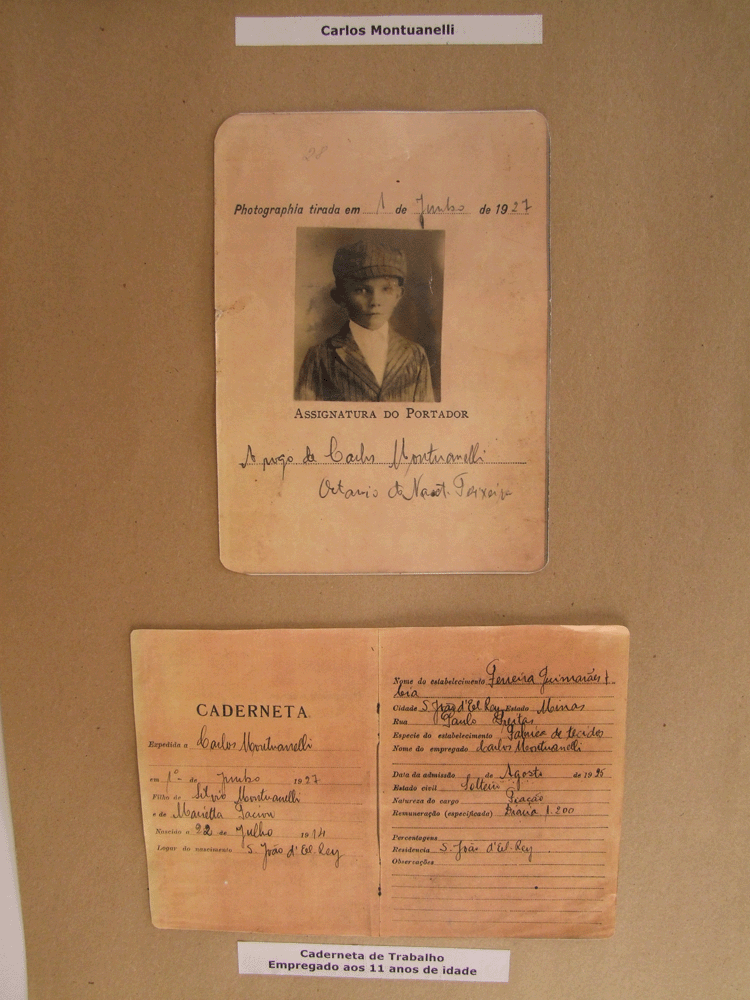 Carlos Montuanelli
Photographia tirada em 1 de Junho de 1927
ASSIGNATURA DO PORTADOR
A rogo de Carlos Montuanelli
Octavio do Nasct. Teixeira
CADERNETA
Expedida a Carlos Montuanelli
em 1º de Junho 1927
Filho de Silvio Montuanelli
e de Marietta
Nascido a 22 de Julho 1914
Logar do nascimento S. João d'El-Rey
Nome do estabelecimento Ferreira Guimarães &
Cia
Cidade S. João d'El Rey Estado Minas
Rua Paulo Freitas
Especie do estabelecimento Fabrica de tecidos
Nome do empregado Carlos Montuanelli
Data da admissão de Agosto de 1925
Estado civil Solteiro
Natureza do cargo Fiação
Remuneração (especificada) Diaria 1.200
Percentagens
Residencia S. João d'El-Rey
Observações
Caderneta de Trabalho
Empregado aos 11 anos de idade